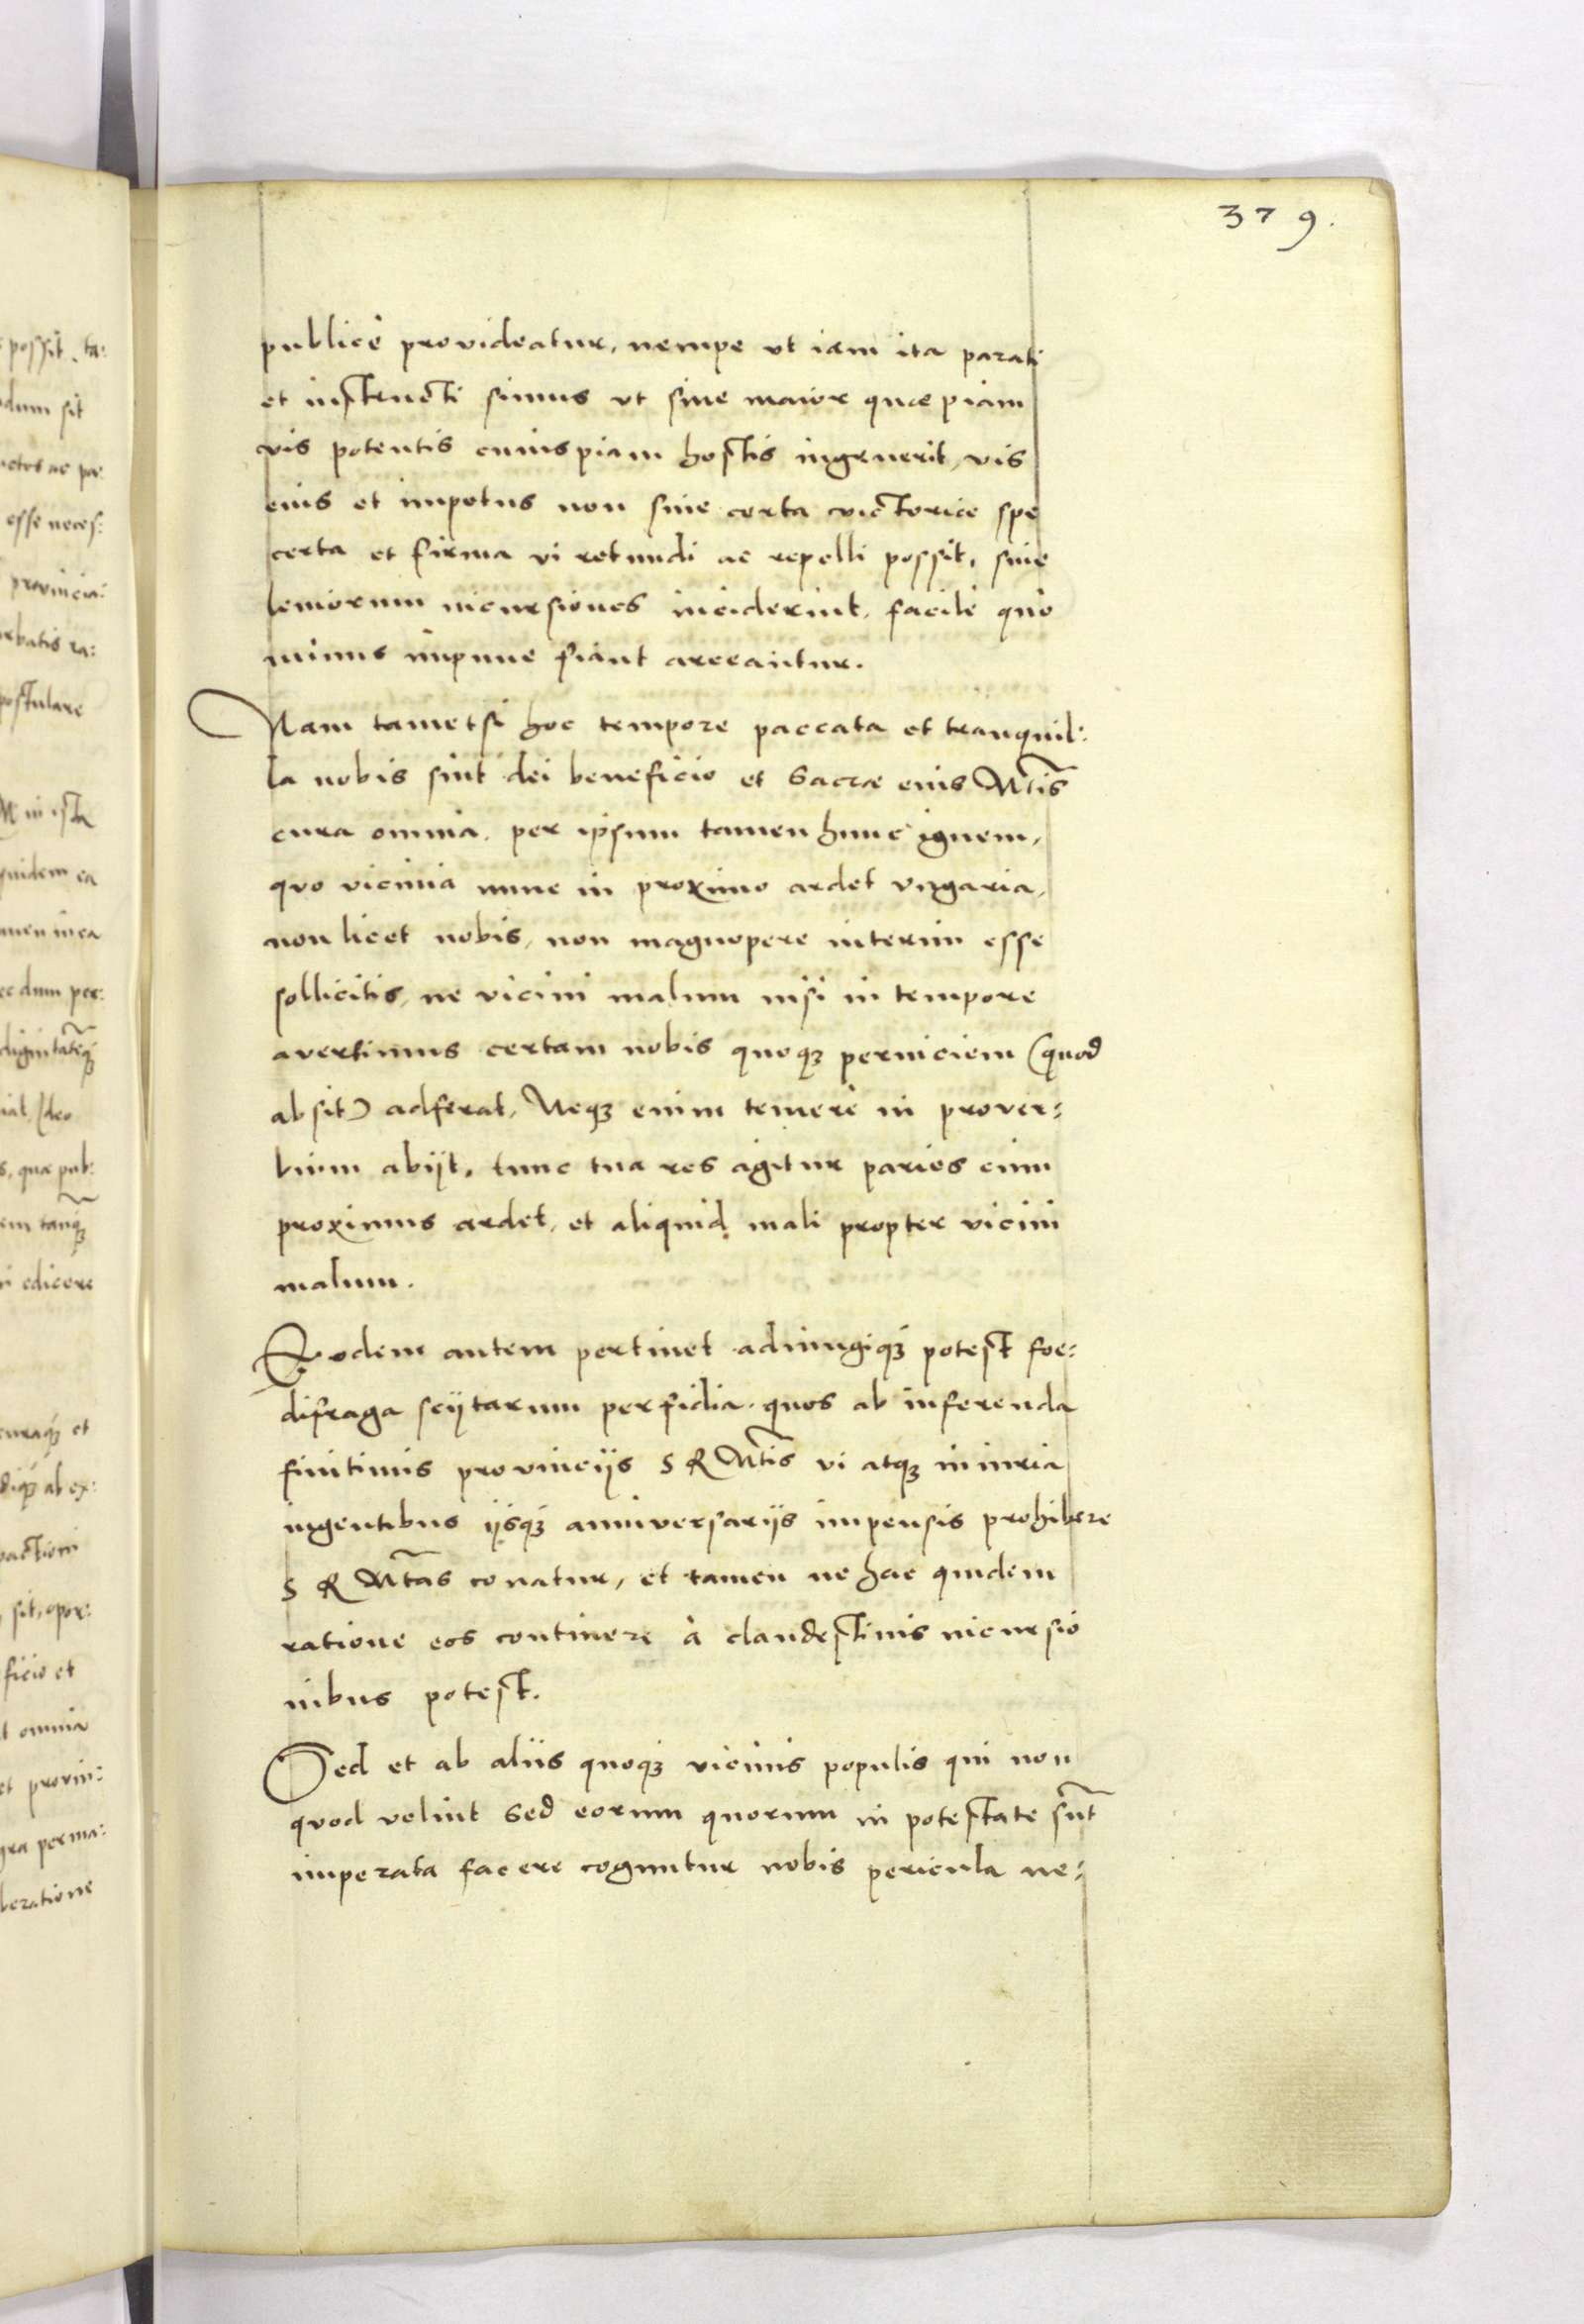 379.
publicè provideatur, nempe ut iam ita parati
et instructi simus ut sive maior quæpiam
vis potentis cuiuspiam hostis ingruerit, vis
eius et impetus non sine certa victoriæ spe
certa et firma vi retundi ac repelli possit, sive
leviorum incursiones inciderint, facilè quò
minus impune fiant arceantur.
Nam tametsi hoc tempore paccata et tranquil:
la nobis sint dei beneficio et Sacræ eius Mtis
cura omnia, per ipsum tamen hunc ignem,
quo vicinia nunc in proximo ardet Ungaria,
non licet nobis, non magnopere interim esse
sollicitis, ne vicini malum nisi in tempore
avertimus certam nobis quoqꝫ perniciem (quod
absit) adferat, Neqꝫ enim temerè in prover:
bium abijt, tunc tua res agitur paries cum
proximus ardet, et aliquid mali propter vicini
malum.
Eodem autem pertinet adiungiqꝫ potest foe:
difraga scytarum perfidia, quos ab inferenda
finitimis provincijs S R Mtis vi atqꝫ iniuria
ingentibus ijsqꝫ anniversarijs impensis prohibere
S R Mtas conatur, et tamen ne hac quidem
ratione eos continere à clandestinis incursio
nibus potest.
Sed et ab aliis quoqꝫ vicinis populis qui non
quod velint sed eorum quorum in potestate sūt
imperata facere coguntur nobis pericula ne:
possit, ta:
dum sit
esse neces:
provincia:
postulare
quidem ea
edicere
sit, opor:
ficio et
omnia
et provin: